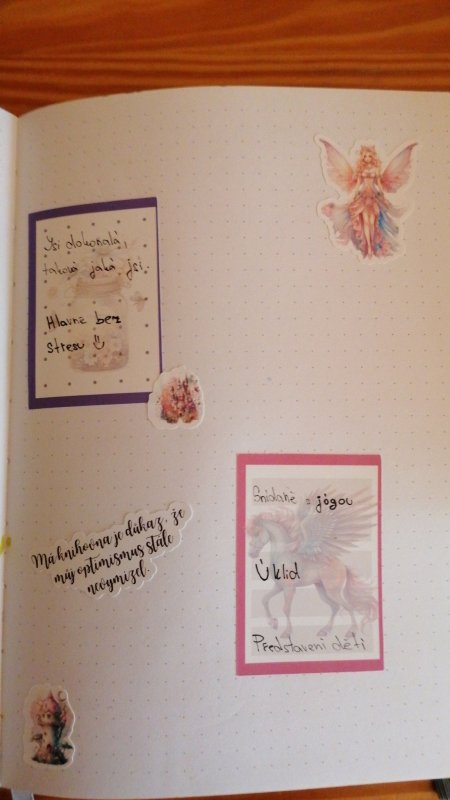 Jsi dokonalá,
taková jaká jsi.
Hlavně bez
stresu
Má knihovna je důkaz, že
můj optimismus stále
nevymizel.
Snídaně s jógou
Úklid
Představení dětí